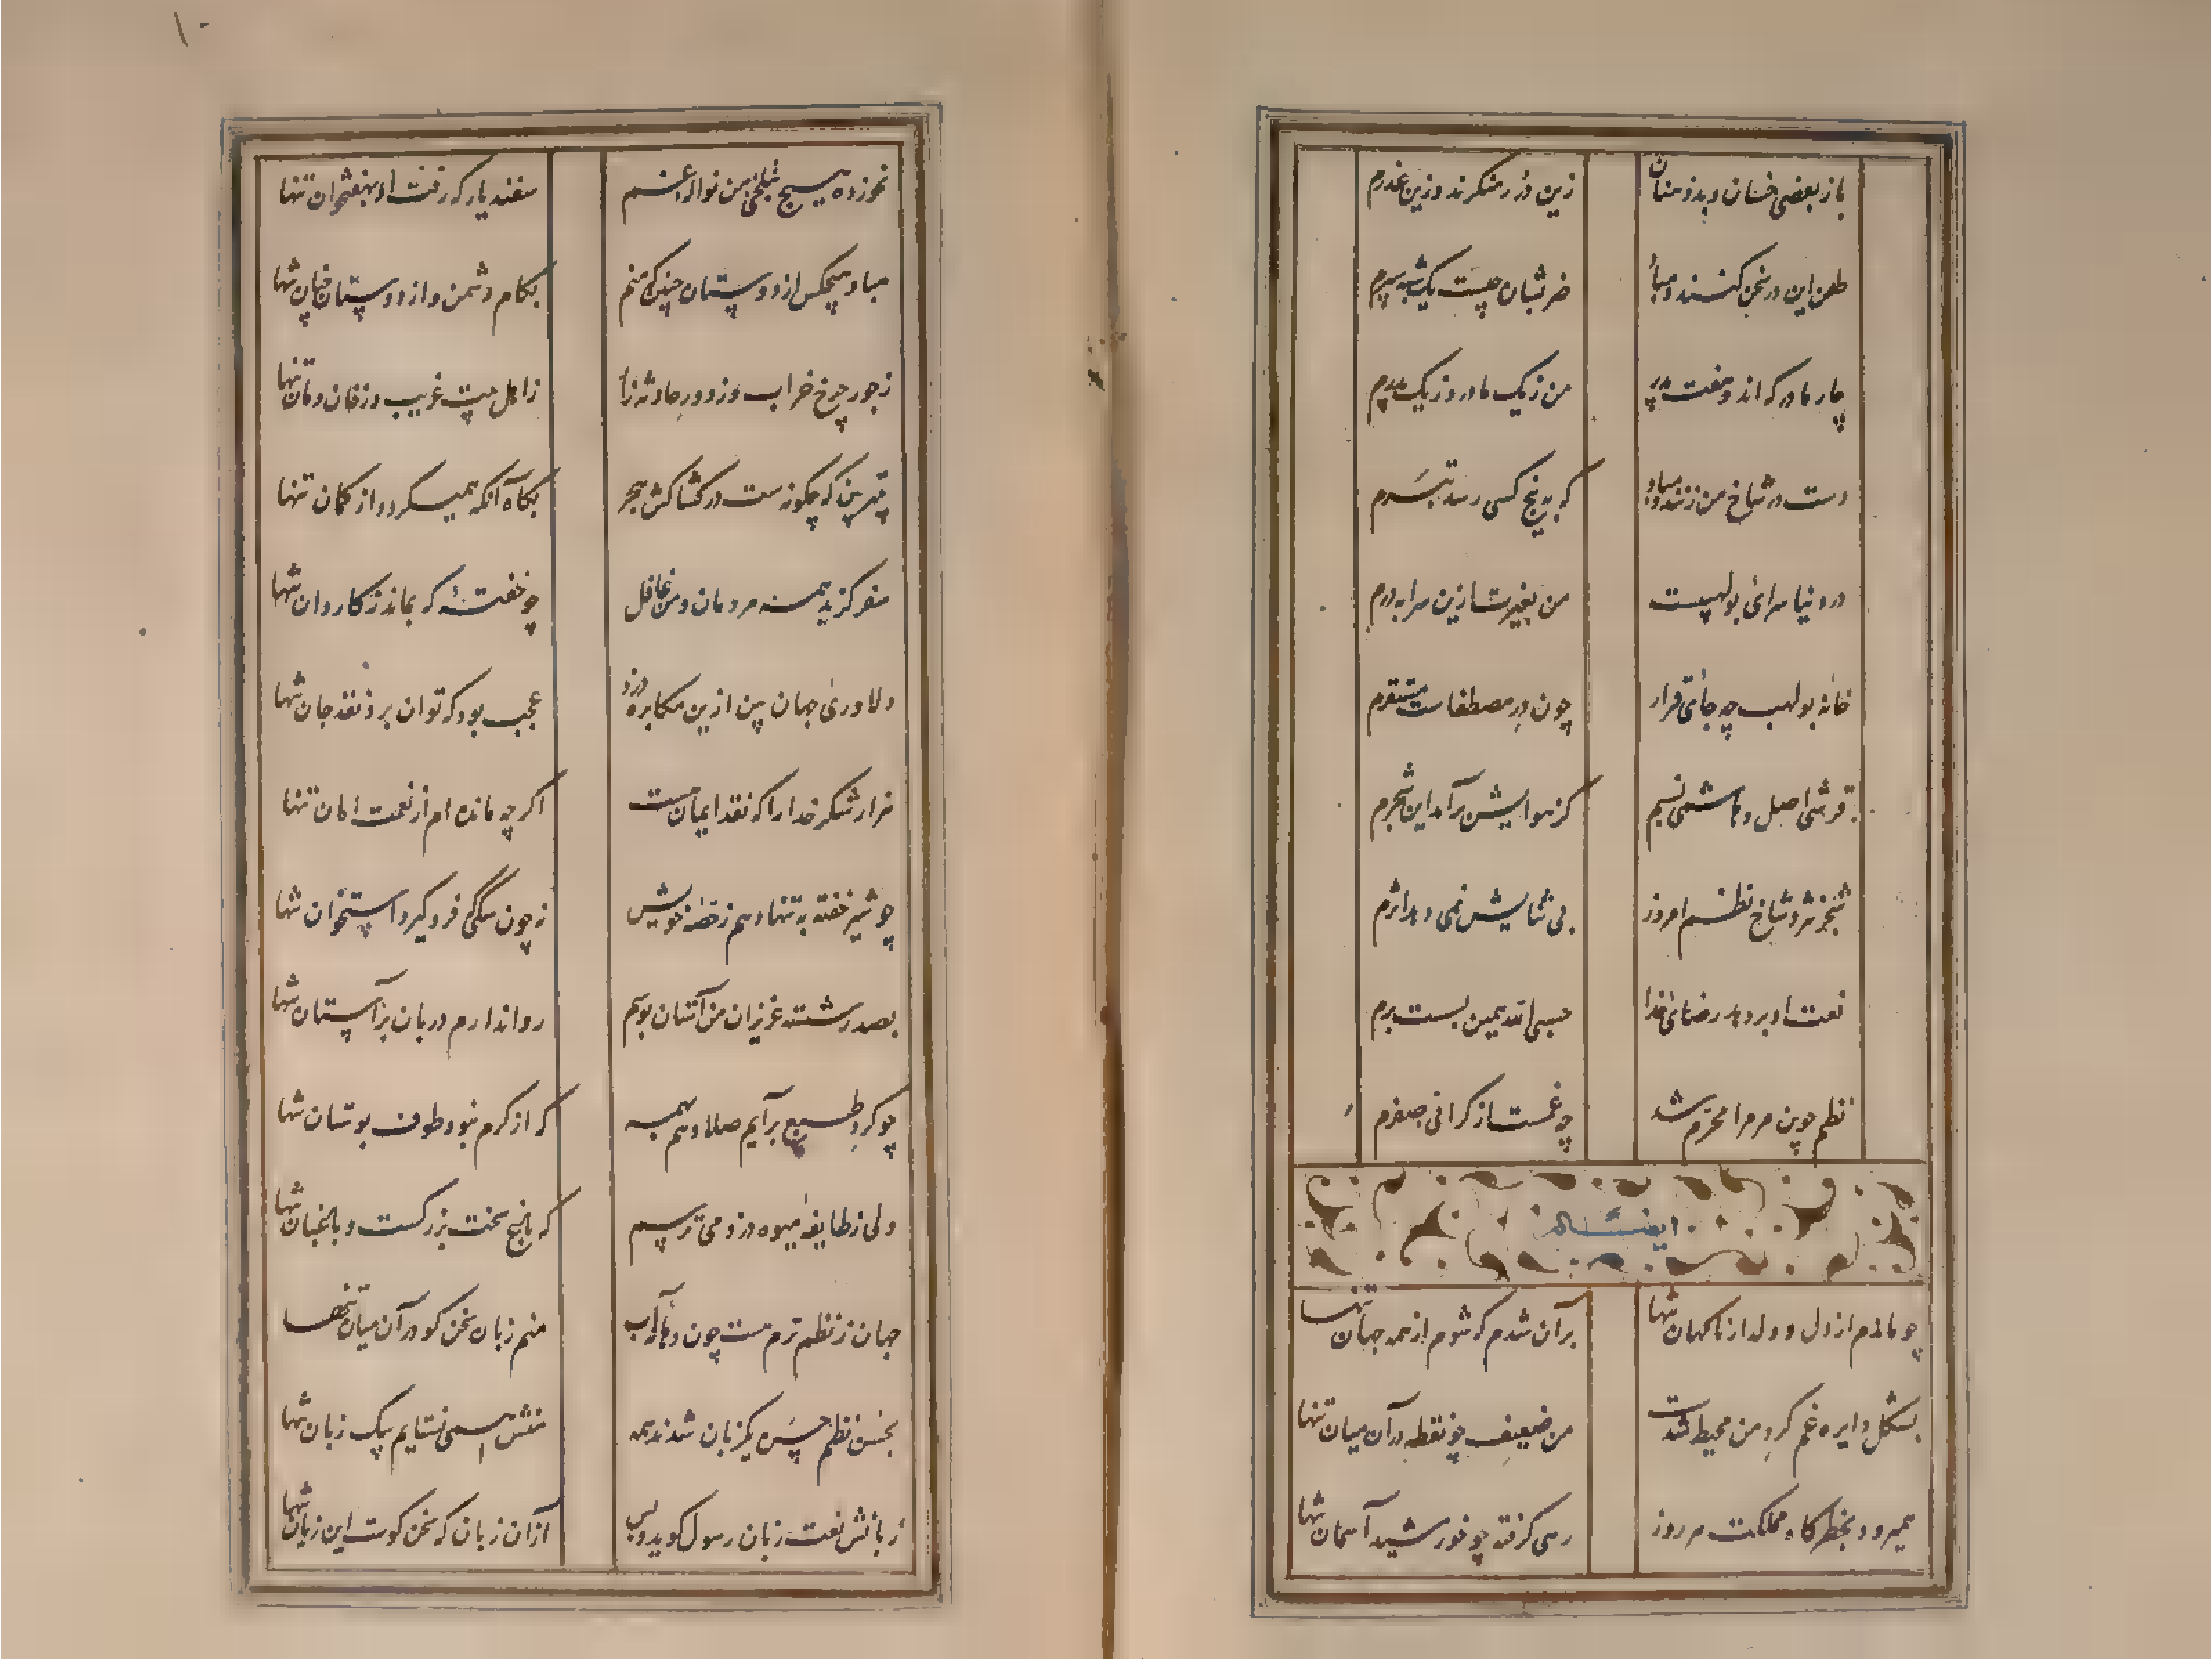 باز بعضی فسان و بد و منان زین در منکرند و زین غدرم
طعن این در سخن کنند و مبا ضربشان چیست یک شبه سپرم
چار مادر که اند و هفت پدر من ز یک مادر و ز یک پدرم
دست در شاخ من زنند و مباد که به بیخ کسی رسد تبرم
در دنیا سرائی بولهبست من بغیرت ازین سرا بدرم
خانهٔ بولهب چه جائی قرار چون در مصطفاست مستقرم
قرشی اصل و هاشمی نسبم کز هوایش برآمد این شجرم
شجر نثر و شاخ نظم امروز بی ثنایش نمی دهد اثرم
نعت او بر دهد رضائی خدا حسبی الله همین بسست برم
نظم چون مر مرا محرم شد چه غمست از گرانی صفرم
ایضاً له
چو ماندم از دل و دلدار ناکهان تنها بر آن شدم که شوم از همه جهان تنها
بشکل دایره غم کرد من محیط شدت من ضعیف چو نقطه در آن میان تنها
همیرود بخطر کاه مملکت هر روز رهی کرفته چو خورشید آسمان تنها
۱۰
نخورده هیچ بتلخی من نواله غم سفندیار که رفت او بهفتخوان تنها
مباد هیچکس از دوستان چنین که منم بکام دشمن و از دوستان چنان تنها
ز جور چرخ خراب و ز دور حادثه زا ز اهل بیت غریب و ز خان و مان تنها
تیر بین که چگونه ست در کشاکش هجر بکاه آنکه همیکردد از کمان تنها
سفر کزیده همه مردمان و من غافل چو خفتهٔ که بماند ز کاروان تنها
دلاوری جهان بین ازین مکابره دزد عجب بود که توان برد نقد جان تنها
هزار شکر خدا را که نقد ایمان هست اکر چه مانده ام از نعمت امان تنها
چو شیر خفته به تنها دهم ز خطهٔ خویش نه چون سگی فرو گیرد استخوان تنها
بصد رشته عزیزان من آستان بوسم روا ندارم دربان بر آستان تنها
چو کرد طبع برآیم صلا دهم همه که از کرم نبود طوف بوستان تنها
ولی ز طایفهٔ میوه دزد می ترسم که باغ سخت بزرکست و باغبان تنها
جهان ز نظم ترم هست چون دهان پر آب منم زبان سخن کو در آن میان تنها
بحسن نظم حسن یکزبان شدند همه منش همی نستایم بیک زبان تنها
زبانش نعت زبان رسول کوید و بس از آن زبان که سخن کوست این زبان تنها